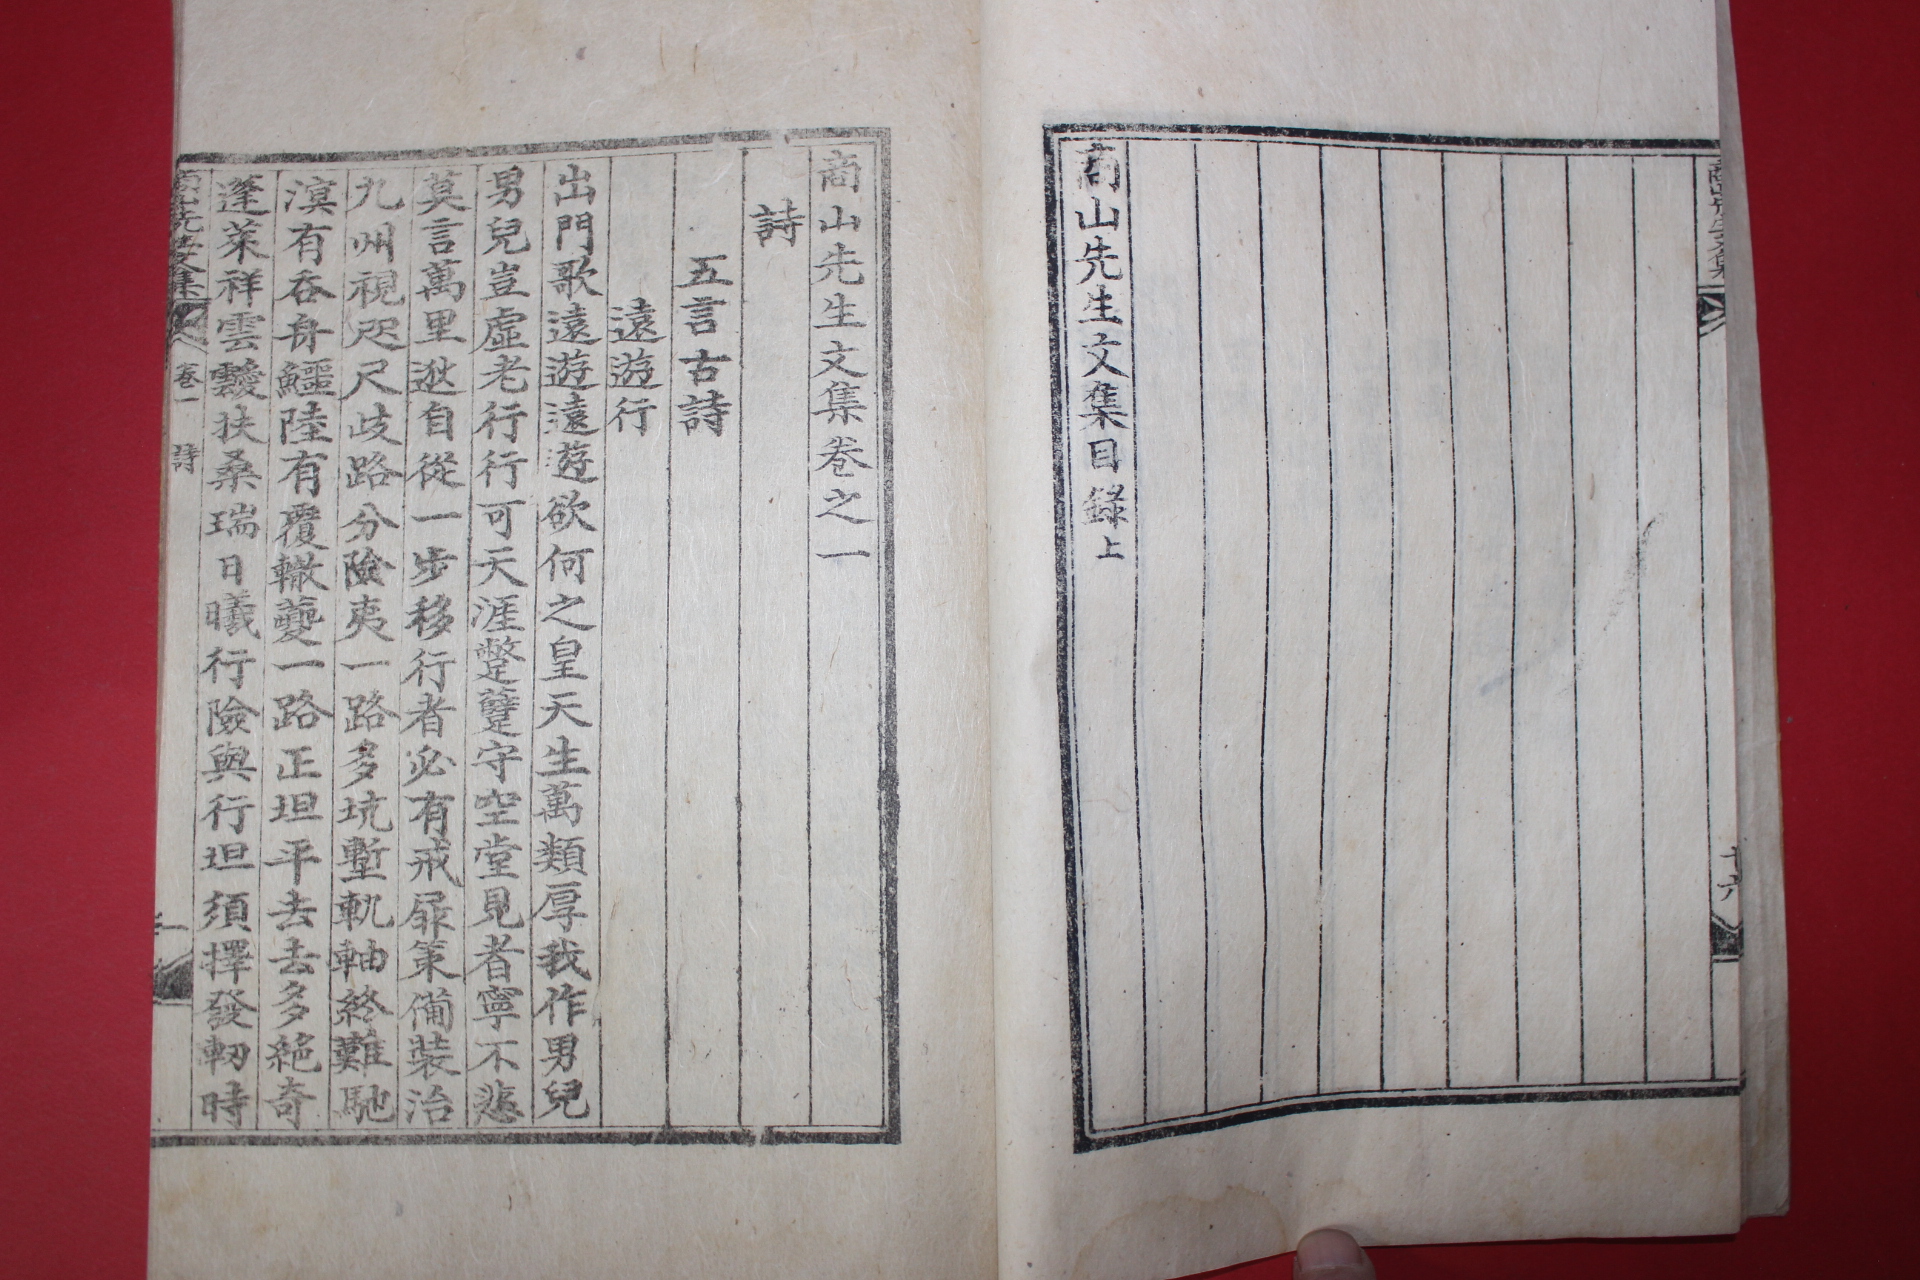 商山先生文集目錄上
商山先生文集卷之一
詩
五言古詩
遠遊行
出門歌遠遊遠遊欲何之皇天生萬類厚我作男兒
男兒豈虛老行行可天涯蹩躠守空堂見者寧不悲
莫言萬里逖自從一步移行者必有戒屝策備裝治
九州視咫尺歧路分險夷一路多坑塹軌軸終難馳
溟有吞舟鱷陸有覆轍夔一路正坦平去去多絶奇
蓬萊祥雲靉扶桑瑞日曦行險與行坦須擇發軔時
卷一
詩
一